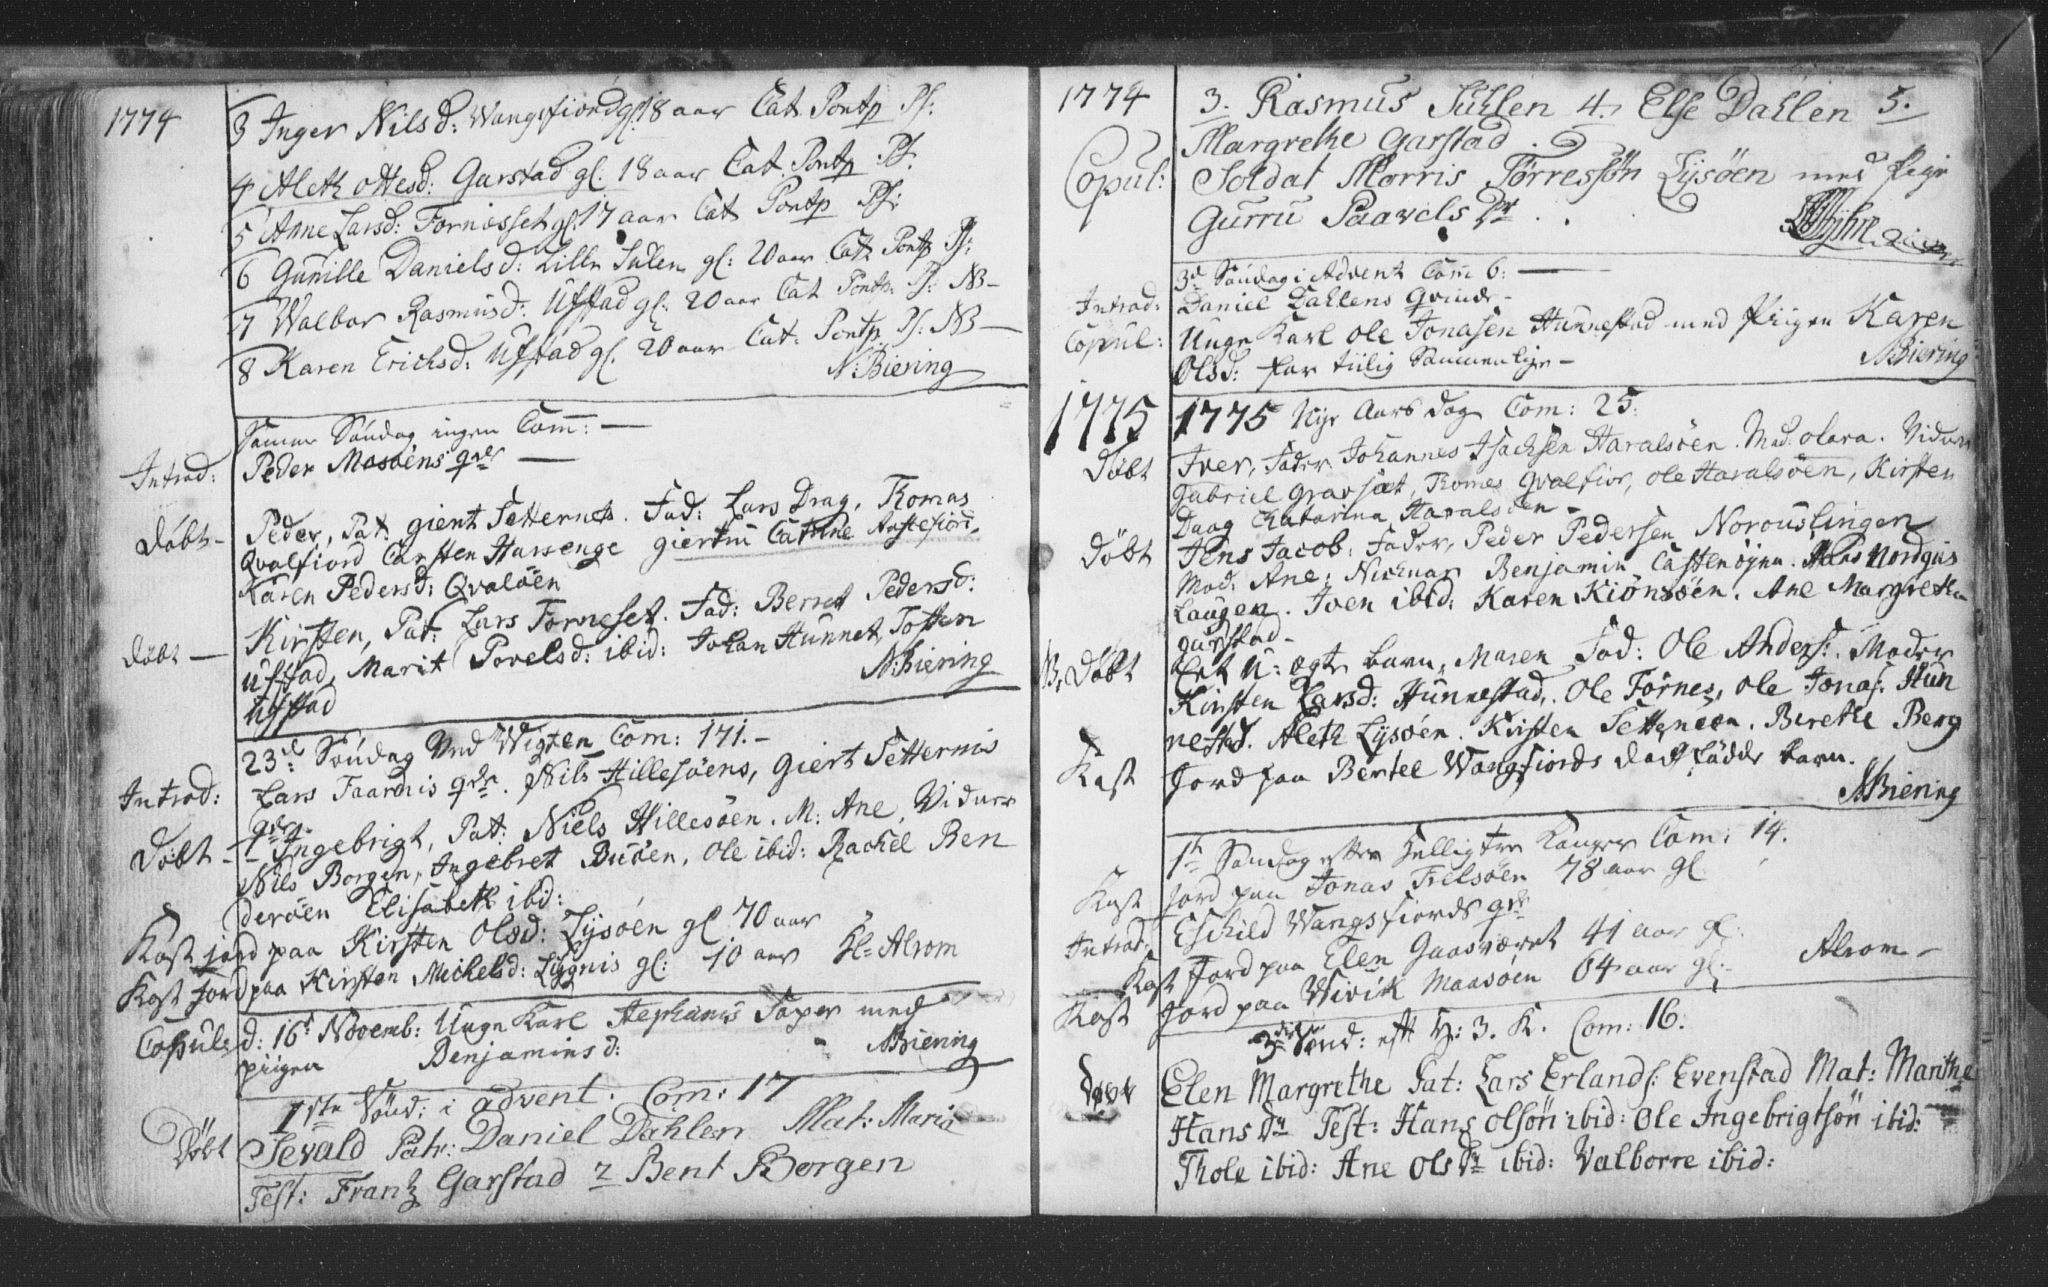 1774
3 Inger Nilsd: Wangsfiord gl: 18 aar Cat Pontp Ps:
4 Aleth Ottesd: Garstad gl: 18 aar Cat Pontp Ps:
5 Anne Larsd: Fornæsset gl: 17 aar Cat Pontp Ps:
6 Gunille Danielsd: Lille Sulen gl: 20 aar Cat Pontp Ps:
7 Walbor Rasmusd: Ufstad gl: 20 aar Cat Pontp: Ps: NB –
8 Karen Erichsd: Ufstad gl: 20 aar Cat: Pontp Ps: NB –
N: Biering
Samme Söndag ingen Com̄: –
Introd: Peder Mosöens qde –
Döbt – Peder, Pat: gient Setternes. Fad: Lars Drag, Thomas
Qvalfiord Carsten Hassenge giertru Catrine
Karen Pedersd: Qvalöen
Döbt – Kirsten, Pat: Lars Forneset. Fad: Berret Pedersd:
Ufstad, Marit Povelsd: ibid: Johan Hunnet, Tosten
Ufstad N: Biering
23de Söndag Ved Wigten Com: 171. –
Introd: Lars Faarnis qde. Nils Hillesöens, Giert Setternis
qde
Döbt – Ingebrigt, Pat: Niels Hillesöen. M: Ane, Vidner
Nils Borgen, Ingebret Busöen, Ole ibid: Rachel Ben
deröen Elisabeth ibid:
Kast jord paa Kirsten Olsd: Lysöen gl 70 aar
Kast jord paa Kirsten Michelsd: Lygnis gl: 10 aar Hl- Alrom
Copuled: 16de Novemb: Unge Karl Stephanus med
piigen Benjaminsd: N Biering
1ste Sönd: i advent. Com: 17
Döbt Sevald Patr: Daniel Dahlen Mat: Maria
Test: Frantz Garstad 2 Bent Borgen
1774
3. Rasmus Suhlen 4. Else Dahlen 5.
Margrethe Garstad.
Copul: Soldat Morris Törressön Lysöen med Pige
Gurru Paavels Dr.
3de Söndag i Advent Com̄ 6: –
Introd: Daniel Dahlens Qvinde –
Copul: Unge Karl Ole Jonasen Hunnestad med Piigen Karen
Olsd: for tiilig Sammenleye – N: Biering
1775 1775 Nye Aars Dag Com: 25.
Döbt Iver, Fader Johannes Isachsen Haralsöen. Mad. olava. Vidner
Gabriel Gravsæt, Thomes Qvalfior, Ole Haralsöen, Kirsten
Daag Chatarina Haralsöen –
Döbt Jens Jacob: Fader, Peder Pedersen
Mod. Ane: Benjamin
Laugen. Iven ibid: Karen Kiönsöen. Ane Margrethe
garstad –
NB. Döbt Et U: ægte barn, Maren Fad: Ole Anders:. Moder
Kirsten Larsd: Hunnestad,. Ole Förnes, Ole Jonas: Hun
nestad. Aleth Lysöen. Kirsten Setternæn. Berethe Berg
Kast Jord paa Bertel Wangsfiords dödfödde barn.
N: Biering
1te Söndag efter Helligtre Konger Com: 14.
Kast jord paa Jonas Frelsöen 78 aar gl.
Introd: Eschild Wangsfiords qde
Kast Jord paa Elen Gaasværet 41 aar gl:
Kast Jord paa Wivik Maasöen 64 aar gl: – Alrom –
3die Sönd: eft H: 3. K. Com: 16.
Döbt Elen Margrethe Pat: Lars Erlands: Evenstad Mat: Marithe
Hans Dr Test: Hans Olsön ibid: Ole Ingebrigtsön ibid:
Thole ibid: Ane Ols Dr ibid: Valborre ibid: